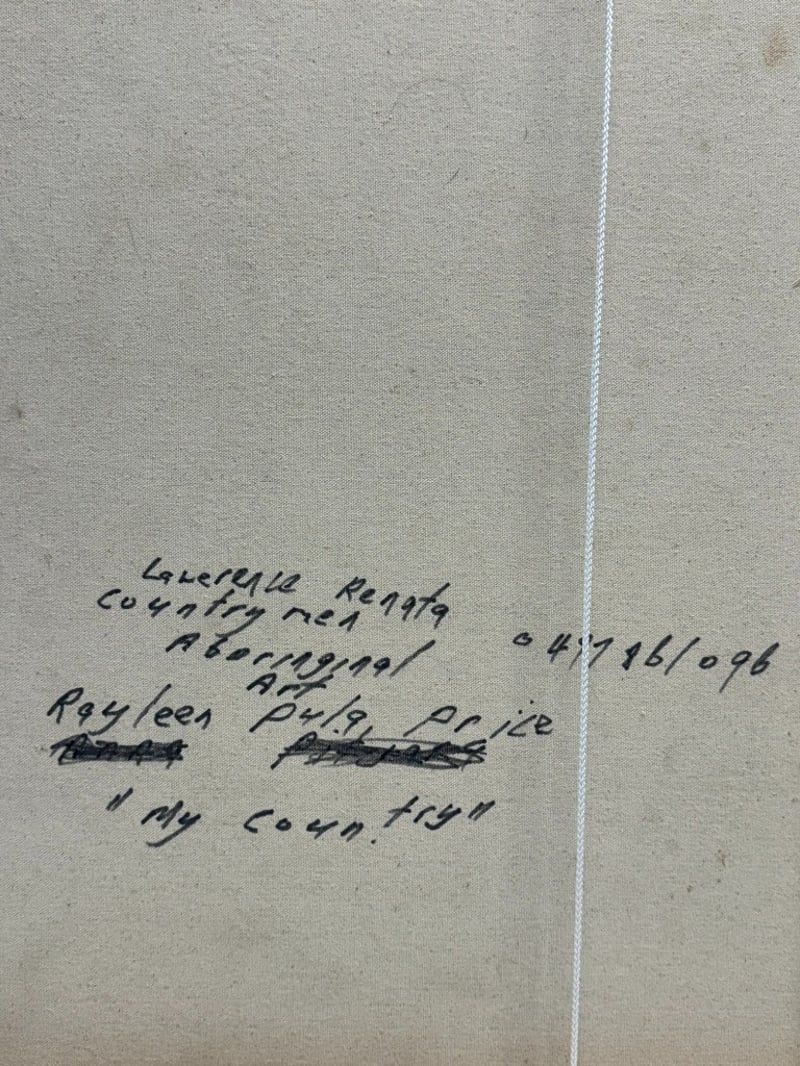 Lawerence Renata
Countrymen
Aboringinal
Art
Rayleen Pula Price
"My Coun.try"